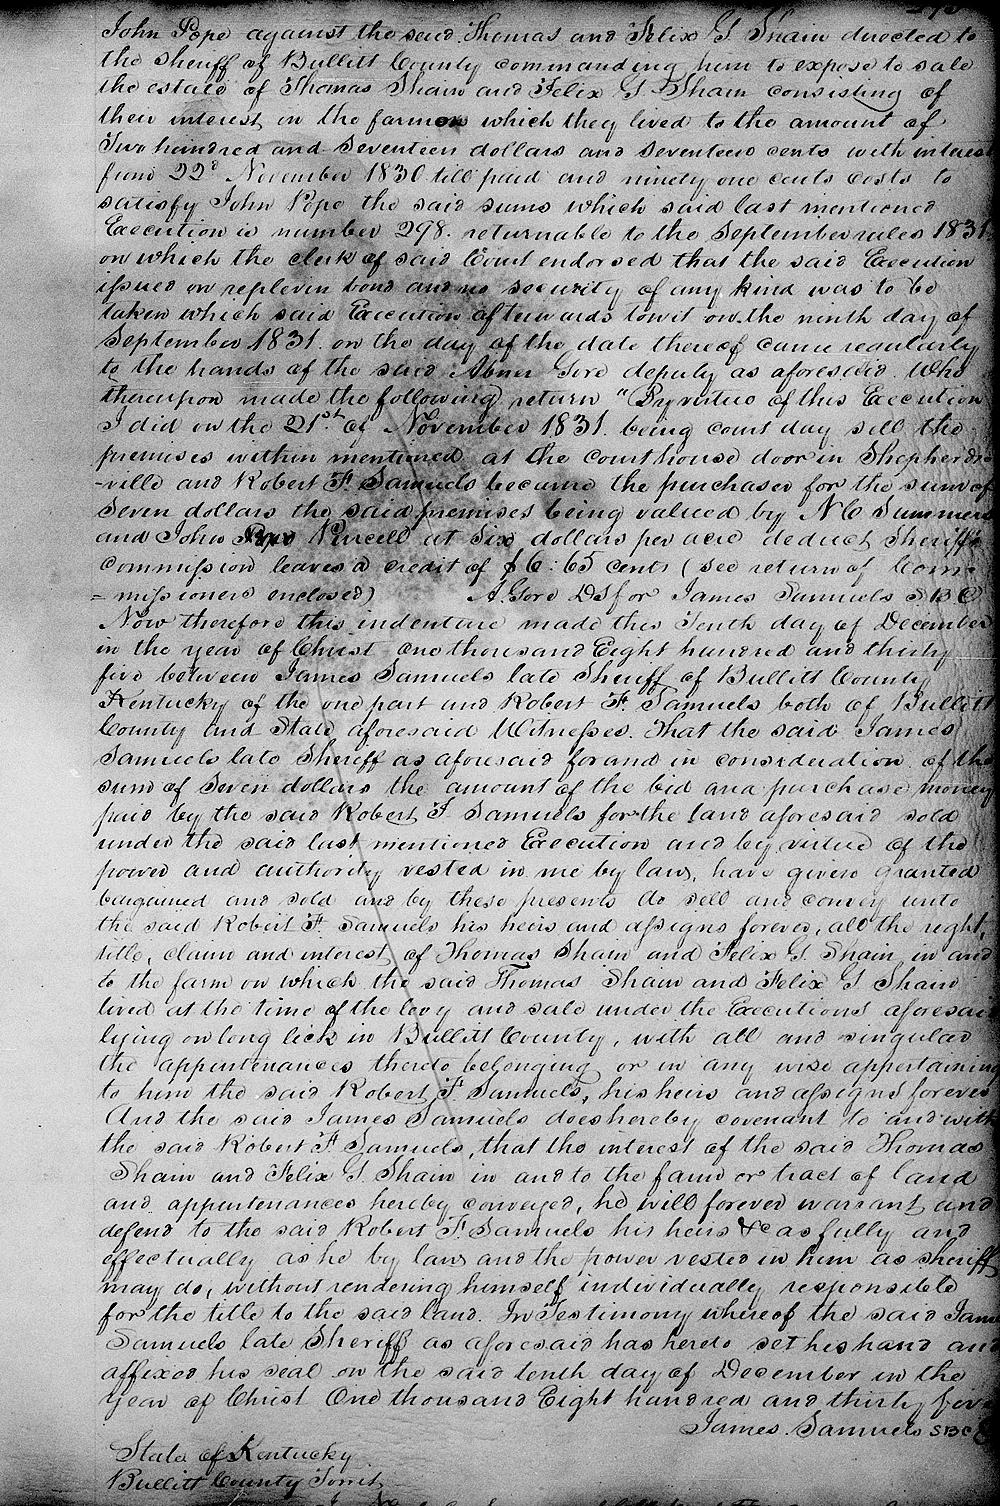 John Pope against the said Thomas and Felix G Shain directed to
the sheriff of Bullitt County commanding him to expose to sale
the estate of Thomas Shain and Felix G Shain consisting of
their interest in the farm on which they lived to the amount of
Two hundred and seventeen dollars and seventeen cents with interest
from 22d November 1830 till paid and ninety one cents costs to
satisfy John Pope the said sums which said last mentioned
Execution is number 298. returnable to the September rules 1831.
on which the clerk of said Court endorsed that the said Execution
issued on replevin bond and no security of any kind was to be
taken which said Execution afterwards towit on the ninth day of
September 1831. on the day of the date thereof came regularly
to the hands of the said Abner Gore deputy as aforesaid. Who
thereupon made the following return "By virtue of this Execution
I did on the 21st of November 1831. being court day sell the
premises within mentioned at the courthouse door in Shepherds-
-ville and Robert F. Samuels became the purchaser for the sum of
Seven dollars the said premises being valued by N C Summers
and John Pope Purcell at Six dollars per acre deduct Sheriffs
commission leaves a credit of $6:65 cents (see return of Com=
=missioners enclosed) A. Gore DS for James Samuels S.B.C.
Now therefore this indenture made this Tenth day of December
in the year of Christ One thousand Eight hundred and thirty
five between James Samuels late Sheriff of Bullitt County
Kentucky of the one part and Robert F. Samuels both of Bullitt
County and State aforesaid Witnesses. That the said James
Samuels late Sheriff as aforesaid for and in consideration of the
sum of Seven dollars the amount of the bid and purchase money
paid by the said Robert F Samuels for the land aforesaid sold
under the said last mentioned Execution and by virtue of the
power and authority vested in me by law, have given granted
bargained and sold and by these presents do sell and convey unto
the said Robert F. Samuels his heirs and assigns forever, all the right,
title, claim and interest of Thomas Shain and Felix G. Shain in and
to the farm on which the said Thomas Shain and Felix G Shain
lived at the time of the levy and sale under the Executions aforesaid
lying on long lick in Bullitt County, with all and singular
the appurtenances thereto belonging or in any wise appertaining
to him the said Robert F. Samuels, his heirs and assigns forever
And the said James Samuels does hereby covenant to and with
the said Robert F Samuels, that the interest of the said Thomas
Shain and Felix G Shain in and to the farm or tract of land
and appurtenances hereby conveyed, he will forever warrant and
defend to the said Robert F. Samuels his heirs &c as fully and
effectually as he by law and the power vested in him as sheriff
may do, without rendering himself individually responsible
for the title to the said land. In Testimony whereof the said James
Samuels late Sheriff as aforesaid has hereto set his hand and
affixed his seal on the said tenth day of December in the
year of Christ One thousand Eight hundred and thirty five
James. Samuels SBC
State of Kentucky
Bullitt County Towit